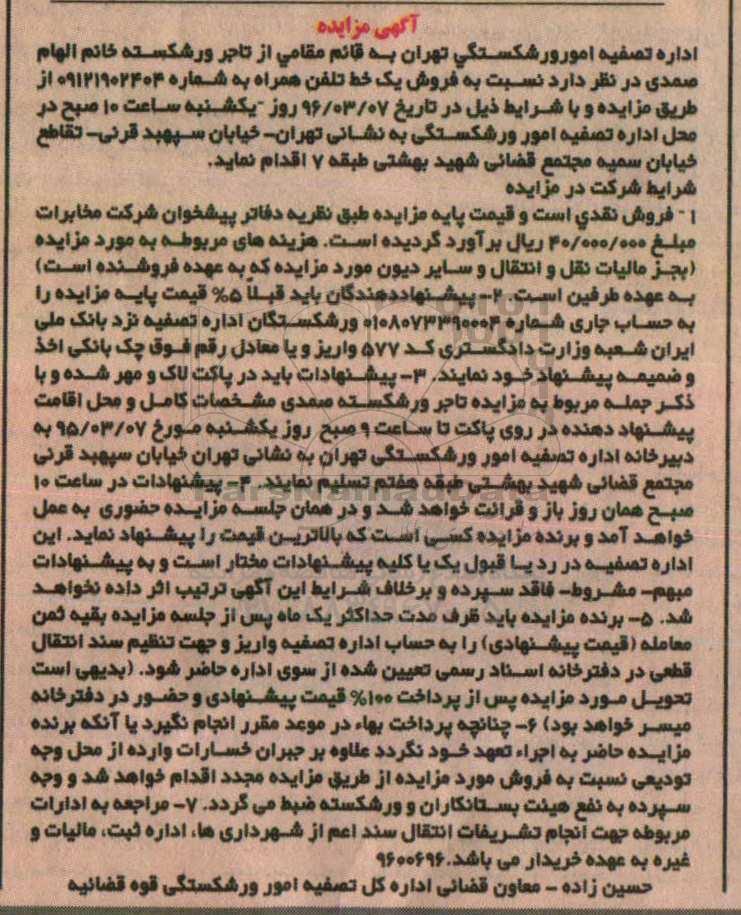 آگهی مزایده
اداره تصفیه امورورشکستگي تهران به قائم مقامي از تاجر ورشکسته خانم الهام
صمدی در نظر دارد نسبت به فروش یک خط تلفن همراه به شماره ۰۹۱۲۱۹۰۲۴۰۴ از
طریق مزایده و با شرایط ذیل در تاریخ ۹۶/۰۳/۰۷ روز -یکشنبه ساعت ۱۰ صبح در
محل اداره تصفیه امور ورشکستگی به نشانی تهران- خیابان سپهبد قرنی- تقاطع
خیابان سمیه مجتمع قضائی شهید بهشتی طبقه ۷ اقدام نماید.
شرایط شرکت در مزایده
۱- فروش نقدي است و قیمت پایه مزایده طبق نظریه دفاتر پیشخوان شرکت مخابرات
مبلغ ۴۰/۰۰۰/۰۰۰ ریال برآورد گردیده است. هزینه های مربوطه به مورد مزایده
(بجز مالیات نقل و انتقال و سایر دیون مورد مزایده که به عهده فروشنده است)
به عهده طرفین است. ۲- پیشنهاددهندگان باید قبلاً ۵% قیمت پایه مزایده را
به حساب جاری شماره ۰۱۰۸۰۷۳۳۹۰۰۰۴ ورشکستگان اداره تصفیه نزد بانک ملی
ایران شعبه وزارت دادگستری کد ۵۷۷ واریز و یا معادل رقم فوق چک بانکی اخذ
و ضمیمه پیشنهاد خود نمایند. ۳- پیشنهادات باید در پاکت لاک و مهر شده و با
ذکر جمله مربوط به مزایده تاجر ورشکسته صمدی مشخصات کامل و محل اقامت
پیشنهاد دهنده در روی پاکت تا ساعت ۹ صبح روز یکشنبه مورخ ۹۵/۰۳/۰۷ به
دبیرخانه اداره تصفیه امور ورشکستگی تهران به نشانی تهران خیابان سپهبد قرنی
مجتمع قضائی شهید بهشتی طبقه هفتم تسلیم نمایند. ۴- پیشنهادات در ساعت ۱۰
صبح همان روز باز و قرائت خواهد شد و در همان جلسه مزایده حضوری به عمل
خواهد آمد و برنده مزایده کسی است که بالاترین قیمت را پیشنهاد نماید. این
اداره تصفیه در رد یا قبول یک یا کلیه پیشنهادات مختار است و به پیشنهادات
مبهم- مشروط- فاقد سپرده و برخلاف شرایط این آگهی ترتیب اثر داده نخواهد
شد. ۵- برنده مزایده باید ظرف مدت حداکثر یک ماه پس از جلسه مزایده بقیه ثمن
معامله (قیمت پیشنهادی) را به حساب اداره تصفیه واریز و جهت تنظیم سند انتقال
قطعی در دفترخانه اسناد رسمی تعیین شده از سوی اداره حاضر شود. (بدیهی است
تحویل مورد مزایده پس از پرداخت ۱۰۰% قیمت پیشنهادی و حضور در دفترخانه
میسر خواهد بود) ۶- چنانچه پرداخت بهاء در موعد مقرر انجام نگیرد یا آنکه برنده
مزایده حاضر به اجراء تعهد خود نگردد علاوه بر جبران خسارات وارده از محل وجه
تودیعی نسبت به فروش مورد مزایده از طریق مزایده مجدد اقدام خواهد شد و وجه
سپرده به نفع هیئت بستانکاران و ورشکسته ضبط می گردد. ۷- مراجعه به ادارات
مربوطه جهت انجام تشریفات انتقال سند اعم از شهرداری ها، اداره ثبت، مالیات و
غیره به عهده خریدار می باشد.۹۶۰۰۶۹۶
حسین زاده - معاون قضائی اداره کل تصفیه امور ورشکستگی قوه قضائیه